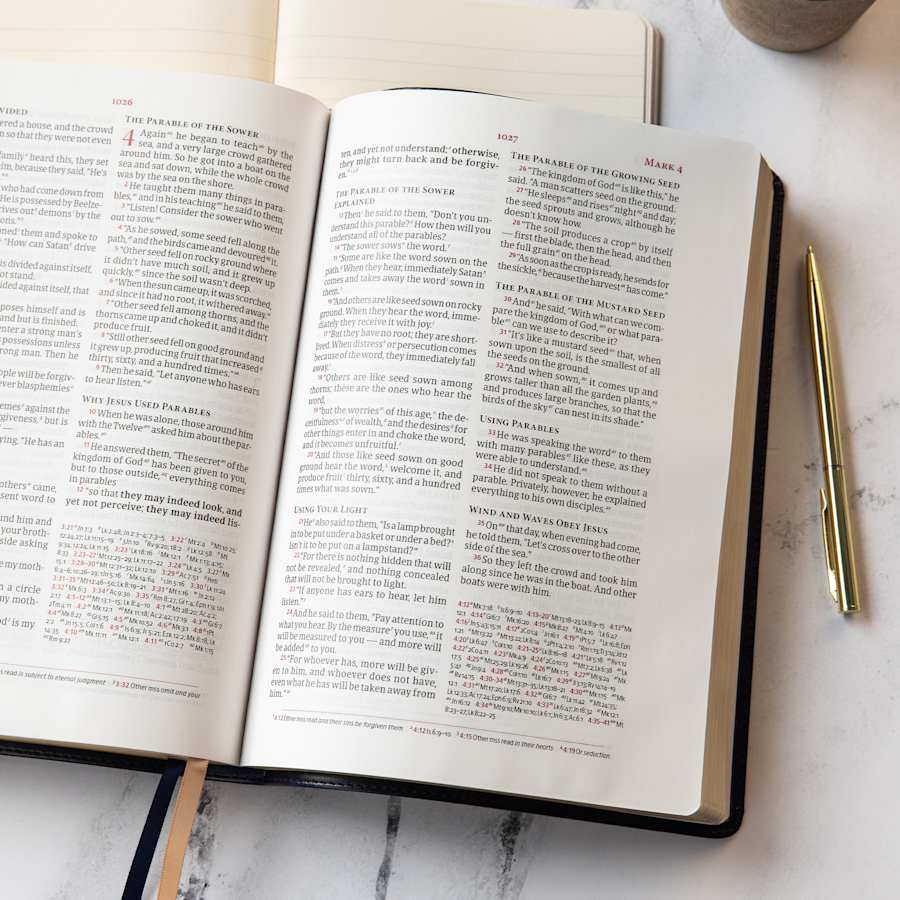 1026
VIDED
ered a house, and the crowd
n so that they were not even
family heard this, they set
him, because they said, "He's
who had come down from
He is possessed by Beelze-
rives out demons by the
ons."
oned them and spoke to
"How can Satan drive
is divided against itself,
ot stand.
ided against itself, that
poses himself and is
and but is finished.
enter a strong man's
possessions unless
rong man. Then he
ople will be forgiv-
ever blasphemies
emes against the
giveness, but is
—
ying, "He has an
others" came,
sent word to
und him and
your broth-
side asking
e my moth-
n a circle
y moth-
od is my
The Parable of the Sower
4 Again he began to teach by the
sea, and a very large crowd gathered
around him. So he got into a boat on the
sea and sat down, while the whole crowd
was by the sea on the shore.
2 He taught them many things in para-
bles, and in his teaching he said to them,
3 "Listen! Consider the sower who went
out to sow.
4 "As he sowed, some seed fell along the
path, and the birds came and devoured it.
5 "Other seed fell on rocky ground where
it didn't have much soil, and it grew up
quickly, since the soil wasn't deep.
6 "When the sun came up, it was scorched,
and since it had no root, it withered away.
7 "Other seed fell among thorns, and the
thorns came up and choked it, and it didn't
produce fruit.
8 "Still other seed fell on good ground and
it grew up, producing fruit that increased
thirty, sixty, and a hundred times."
9 Then he said, "Let anyone who has ears
to hear listen."
Why Jesus Used Parables
10 When he was alone, those around him
with the Twelve asked him about the par-
ables.
11 He answered them, "The secret of the
kingdom of God has been given to you,
but to those outside, everything comes
in parables
12 "so that they may indeed look, and
yet not perceive; they may indeed lis-
n is subject to eternal judgment 3:32 Other mss omit and your
1027
Mark 4
ten, and yet not understand; otherwise,
they might turn back and be forgiv-
en."
The Parable of the Sower
Explained
13 Then he said to them, "Don't you un-
derstand this parable? How then will you
understand all of the parables?
14 "The sower sows the word.
15 "Some are like the word sown on the
path. When they hear, immediately Satan
comes and takes away the word sown in
them.
16 "And others are like seed sown on rocky
ground. When they hear the word, imme-
diately they receive it with joy.
17 "But they have no root; they are short-
lived. When distress or persecution comes
because of the word, they immediately fall
away.
18 "Others are like seed sown among
thorns; these are the ones who hear the
word,
19 "but the worries of this age, the de-
ceitfulness of wealth, and the desires for
other things enter in and choke the word,
and it becomes unfruitful.
20 "And those like seed sown on good
ground hear the word, welcome it, and
produce fruit thirty, sixty, and a hundred
times what was sown."
Using Your Light
21 He also said to them, "Is a lamp brought
in to be put under a basket or under a bed?
Isn't it to be put on a lampstand?
22 "For there is nothing hidden that will
not be revealed, and nothing concealed
that will not be brought to light.
23 "If anyone has ears to hear, let him
listen."
24 And he said to them, "Pay attention to
what you hear. By the measure you use, it
will be measured to you — and more will
be added to you.
25 "For whoever has, more will be giv-
en to him, and whoever does not have,
even what he has will be taken away from
him."
The Parable of the Growing Seed
26 "The kingdom of God is like this," he
said. "A man scatters seed on the ground.
27 "He sleeps and rises night and day;
the seed sprouts and grows, although he
doesn't know how.
28 "The soil produces a crop by itself
— first the blade, then the head, and then
the full grain on the head.
29 "As soon as the crop is ready, he sends for
the sickle, because the harvest has come."
The Parable of the Mustard Seed
30 And he said, "With what can we com-
pare the kingdom of God, or what para-
ble can we use to describe it?
31 "It's like a mustard seed that, when
sown upon the soil, is the smallest of all
the seeds on the ground.
32 "And when sown, it comes up and
grows taller than all the garden plants,
and produces large branches, so that the
birds of the sky can nest in its shade."
Using Parables
33 He was speaking the word to them
with many parables like these, as they
were able to understand.
34 He did not speak to them without a
parable. Privately, however, he explained
everything to his own disciples.
Wind and Waves Obey Jesus
35 On that day, when evening had come,
he told them, "Let's cross over to the other
side of the sea."
36 So they left the crowd and took him
along since he was in the boat. And other
boats were with him.
4:12 Other mss read and their sins be forgiven them 4:12 Is 6:9–10 4:15 Other mss read in their hearts 4:19 Or seduction